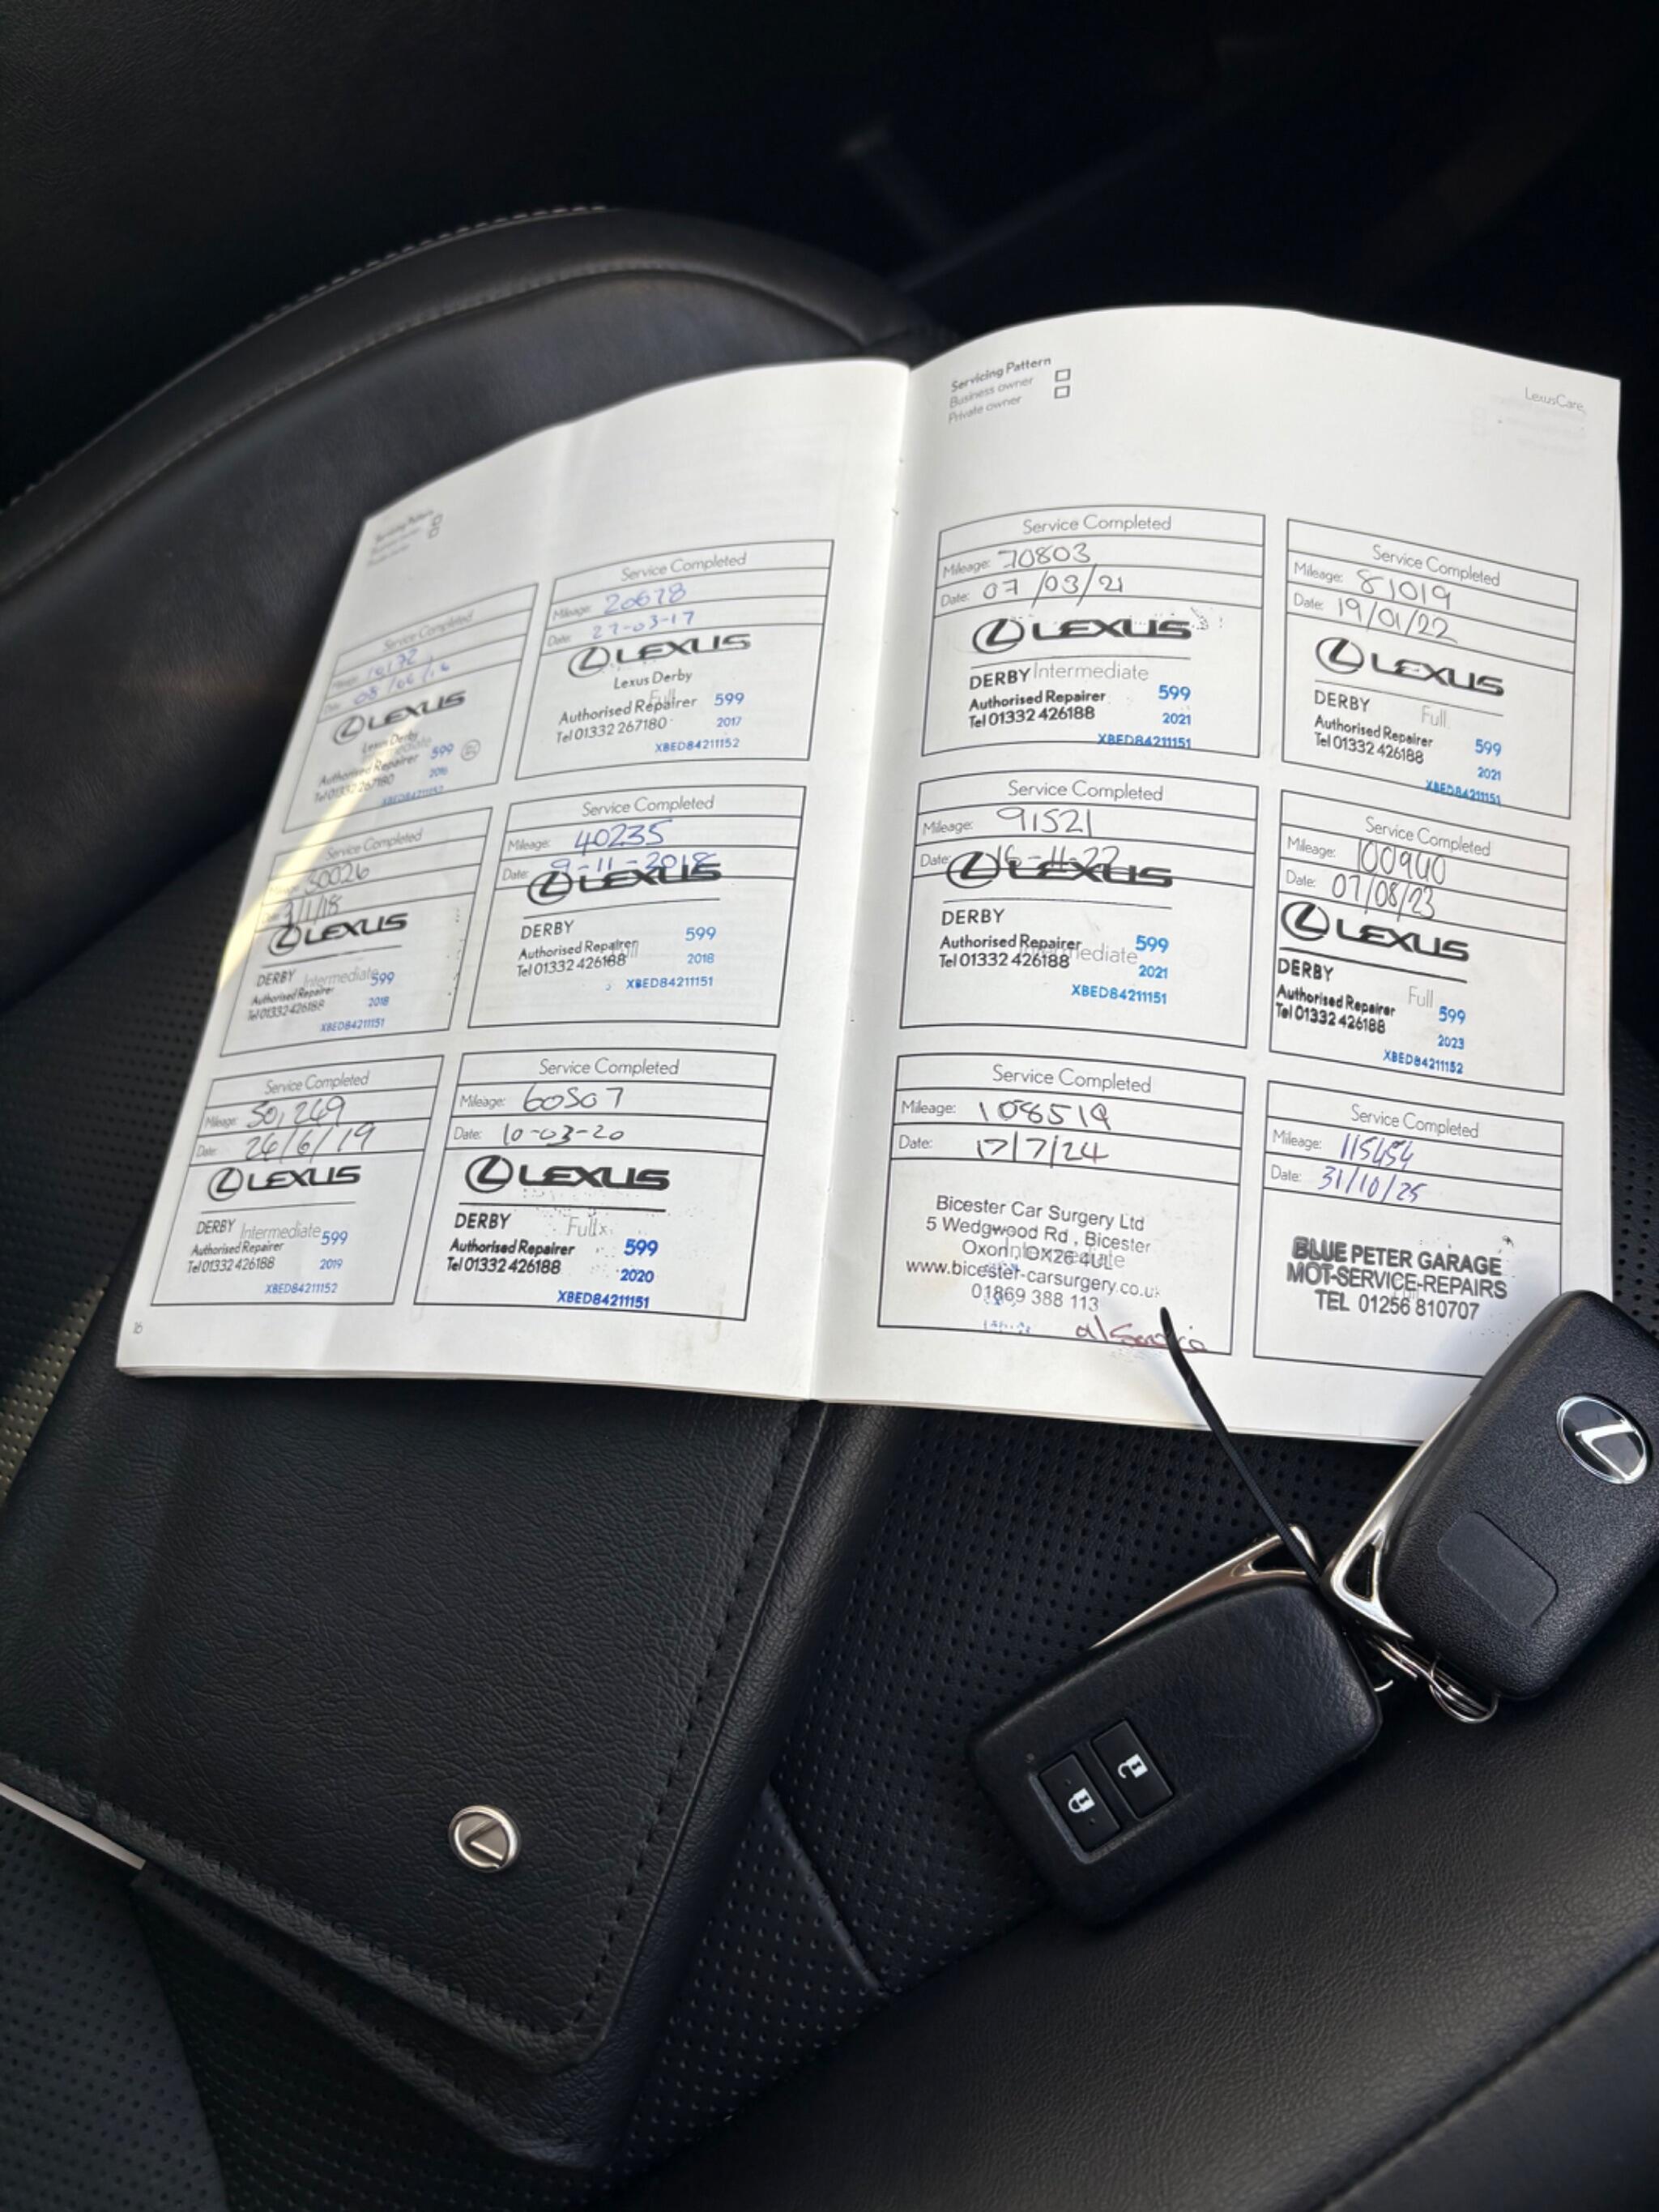 Servicing Pattern
Service Completed
Mileage: 10172
Date: 08/06/16
LEXUS
Lexus Derby
Authorised Repairer 599
Tel 01332 267180 2016
XBED84211152
Service Completed
Mileage: 20678
Date: 27-03-17
LEXUS
Lexus Derby
Full
Authorised Repairer 599
Tel 01332 267180 2017
XBED84211152
Service Completed
Mileage: 30026
Date: 3/1/18
LEXUS
DERBY Intermediate 599
Authorised Repairer
Tel 01332 426188 2018
XBED84211151
Service Completed
Mileage: 40235
Date: 9-11-2018
LEXUS
DERBY 599
Authorised Repairer
Tel 01332 426188 2018
XBED84211151
Service Completed
Mileage: 50,249
Date: 26/6/19
LEXUS
DERBY Intermediate 599
Authorised Repairer
Tel 01332 426188 2019
XBED84211152
Service Completed
Mileage: 60507
Date: 10-03-20
LEXUS
DERBY Full
Authorised Repairer 599
Tel 01332 426188 2020
XBED84211151
16
Servicing Pattern
Business owner
Private owner
LexusCare
Service Completed
Mileage: 70803
Date: 07/03/21
LEXUS
DERBY Intermediate
Authorised Repairer 599
Tel 01332 426188 2021
XBED84211151
Service Completed
Mileage: 81019
Date: 19/01/22
LEXUS
DERBY Full
Authorised Repairer 599
Tel 01332 426188 2021
XBED84211151
Service Completed
Mileage: 91521
Date: 16-11-22
LEXUS
DERBY
Authorised Repairer 599
Tel 01332 426188 2021
XBED84211151
Service Completed
Mileage: 100940
Date: 07/08/23
LEXUS
DERBY
Authorised Repairer Full 599
Tel 01332 426188 2023
XBED84211152
Service Completed
Mileage: 108519
Date: 17/7/24
Bicester Car Surgery Ltd
5 Wedgwood Rd , Bicester
Oxon OX26 4UL
www.bicester-carsurgery.co.uk
01869 388 113
Service Completed
Mileage: 115454
Date: 31/10/25
BLUE PETER GARAGE
MOT-SERVICE-REPAIRS
TEL 01256 810707